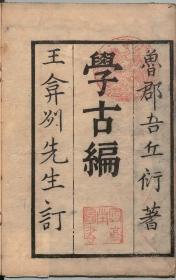 魯郡吾丘衍著
學古編
王弇州先生訂